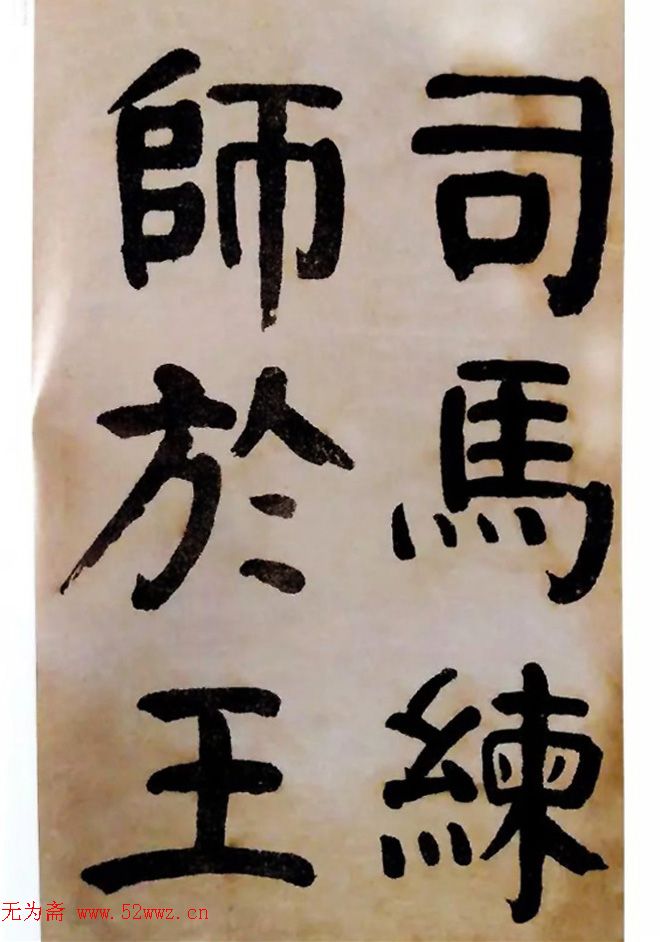 司馬練
師於王
无为斋 www.52wwz.cn